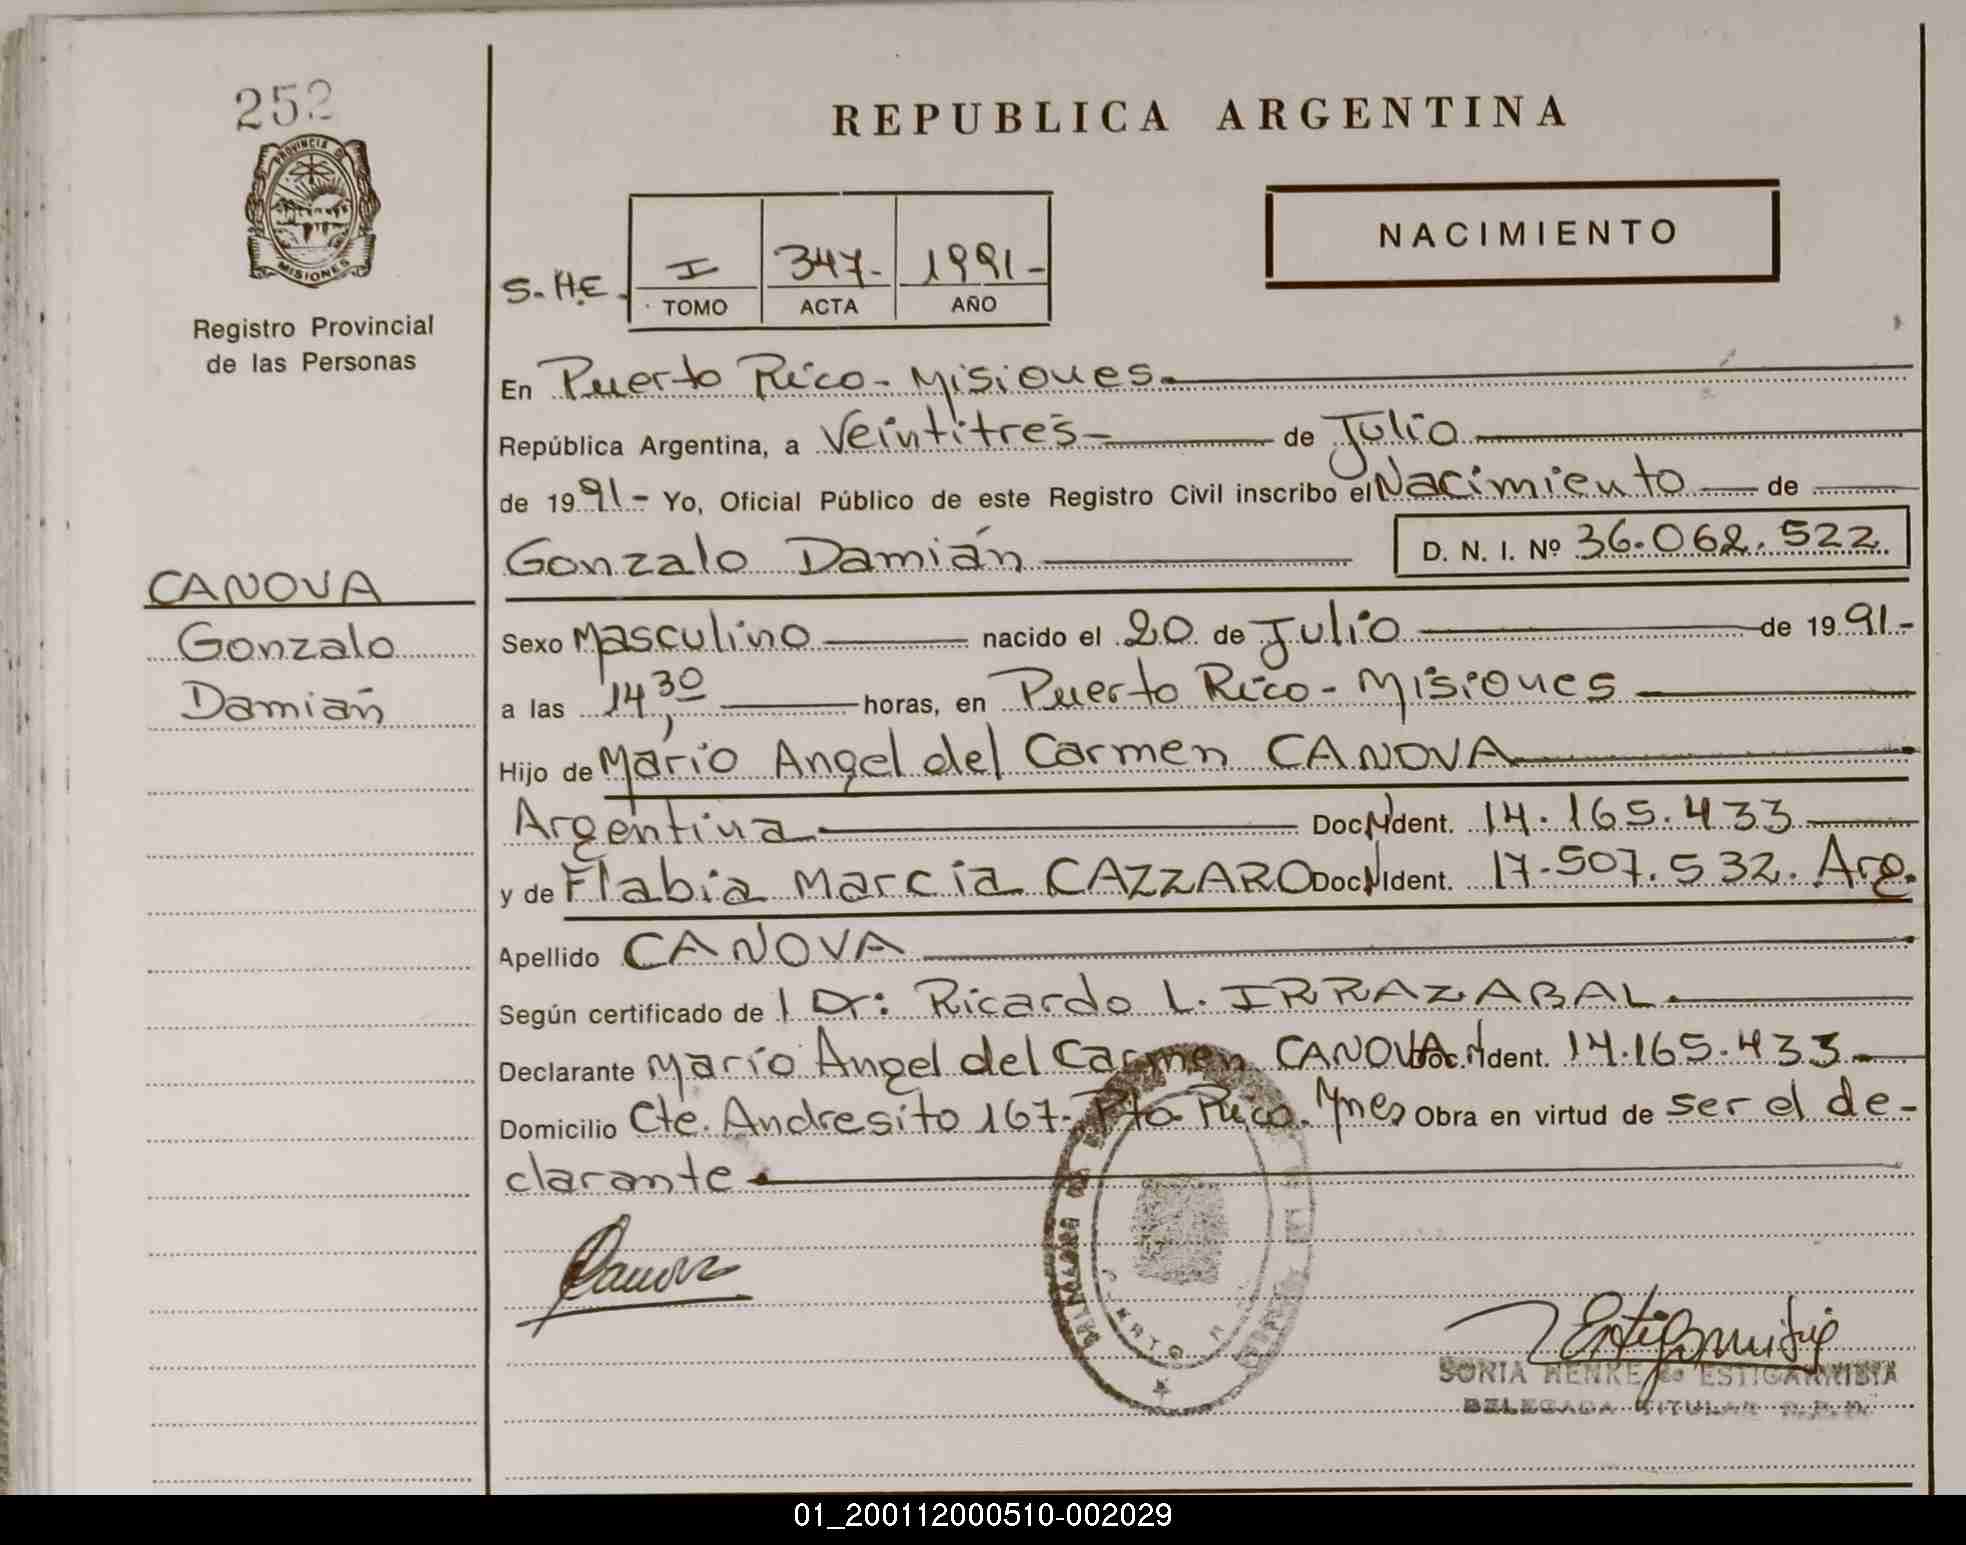 252
PROVINCIA DE
MISIONES
Registro Provincial
de las Personas
REPUBLICA ARGENTINA
NACIMIENTO
S.H.E. I 347- 1991-
TOMO ACTA AÑO
En Puerto Rico - Misiones.
República Argentina, a Veintitres- de Julio
de 1991- Yo, Oficial Público de este Registro Civil inscribo el Nacimiento de
Gonzalo Damián D. N. I. Nº 36.062.522
CANOVA
Gonzalo
Damián
Sexo Masculino nacido el 20 de Julio de 1991-
a las 14,30 horas, en Puerto Rico - Misiones
Hijo de Mario Angel del Carmen CANOVA
Argentina Doc. Ident. 14.165.433
y de Flabia Marcia CAZZARO Doc. Ident. 17.507.532. Arg.
Apellido CANOVA
Según certificado de l Dr: Ricardo L. IRRAZABAL
Declarante Mario Angel del Carmen CANOVA Doc. Ident. 14.165.433
Domicilio Cte. Andresito 167- Pto Rico. Mnes Obra en virtud de ser el de-
clarante
Canova
SONIA HENKE de ESTIGARRIBIA
DELEGADA TITULAR R.P.P.
01_200112000510-002029